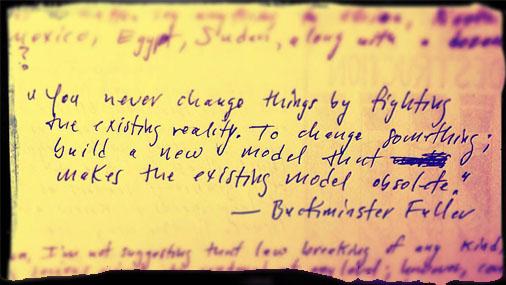 Mexico, Egypt, Sudan, along with a
"You never change things by fighting
the existing reality. To change something;
build a new model that
makes the existing model obsolete."
— Buckminster Fuller
I'm not suggesting that law breaking of any kind,